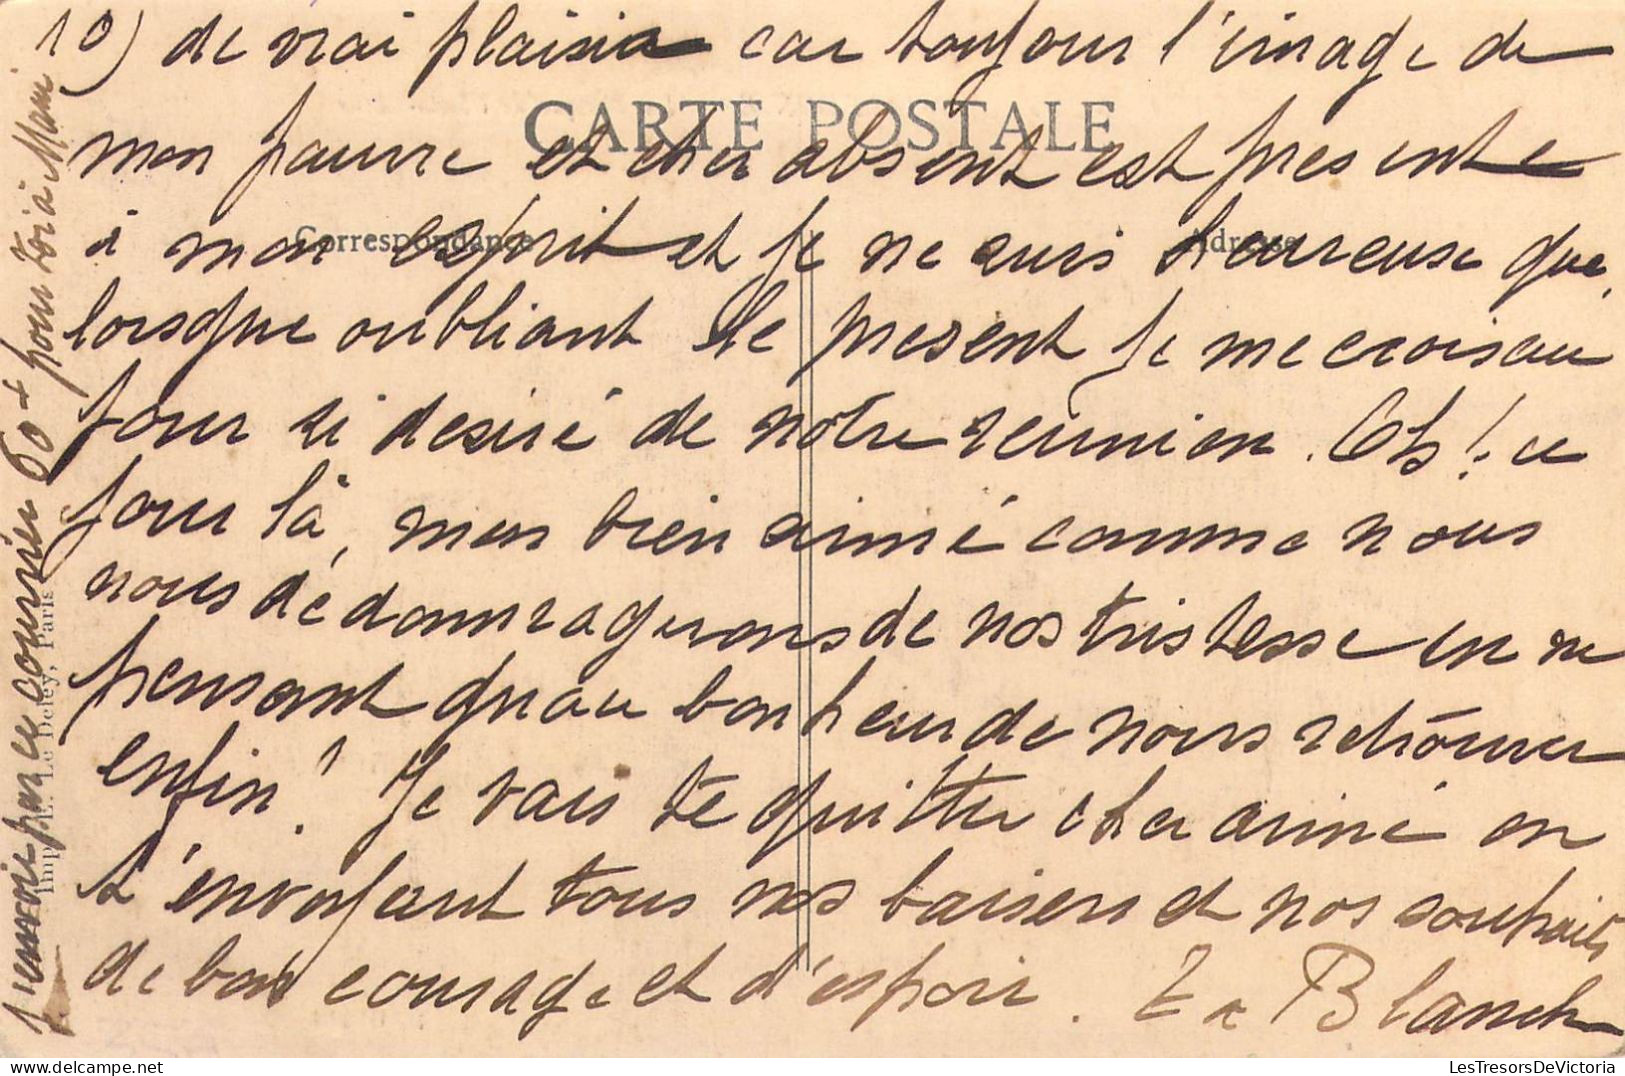 10) de vrai plaisir car toujour l'image de
CARTE POSTALE
mon pauvre et cher absent est presente
Correspondance
Adresse
à mon esprit et je ne suis heureuse que
lorsque oubliant le present je me crois au
jour si desiré de notre reunion. Oh! ce
jour là, mon bien aimé comme nous
nous dédommagerons de nos tristesse en ne
pensant qu'au bonheur de nous retrouver
enfin! Je vais te quitter cher aimé en
t'envoyant tous nos baisers et nos souhaits
de bon courage et d'espoir. Ta Blanche
J'envoie par ce courrier 60 + pour toi à Mami
Imp. E. Le Deley, Paris
LesTresorsDeVictoria